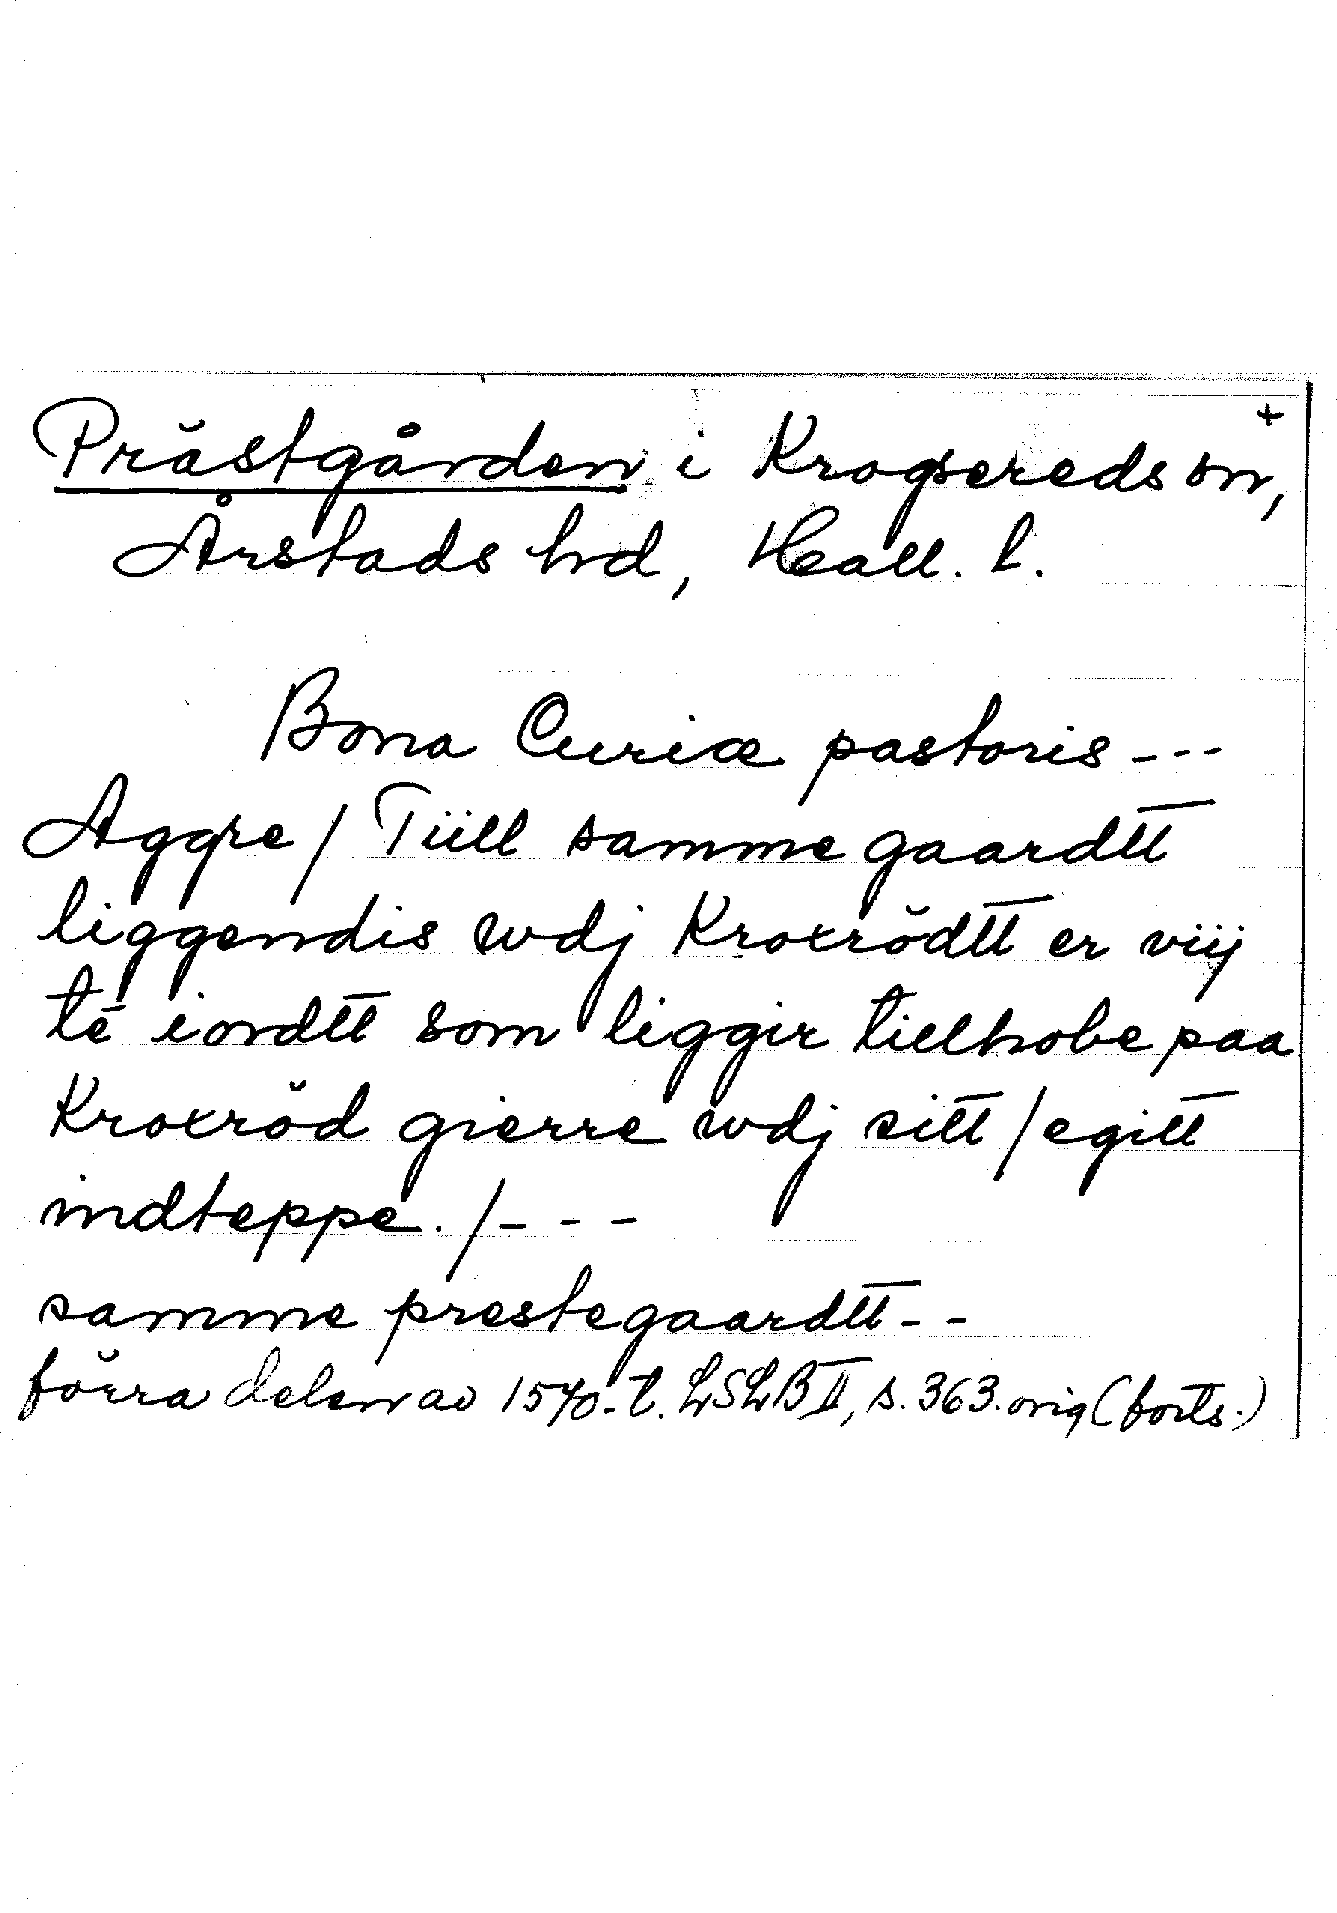 +
Prästgården i Krogsereds sn,
Årstads hd, Hall. l.
Bona Curiæ pastoris ---
Aggre / Tiill samme gaardtt
liggendis wdj Kroxrödtt er viij
te iordtt som liggir tiilhobe paa
Kroxröd gierre wdj sitt / egitt
indteppe. / - - -
samme prestegaardtt - -
förra delen av 1570-t. LSLB II, s. 363. orig (forts.)